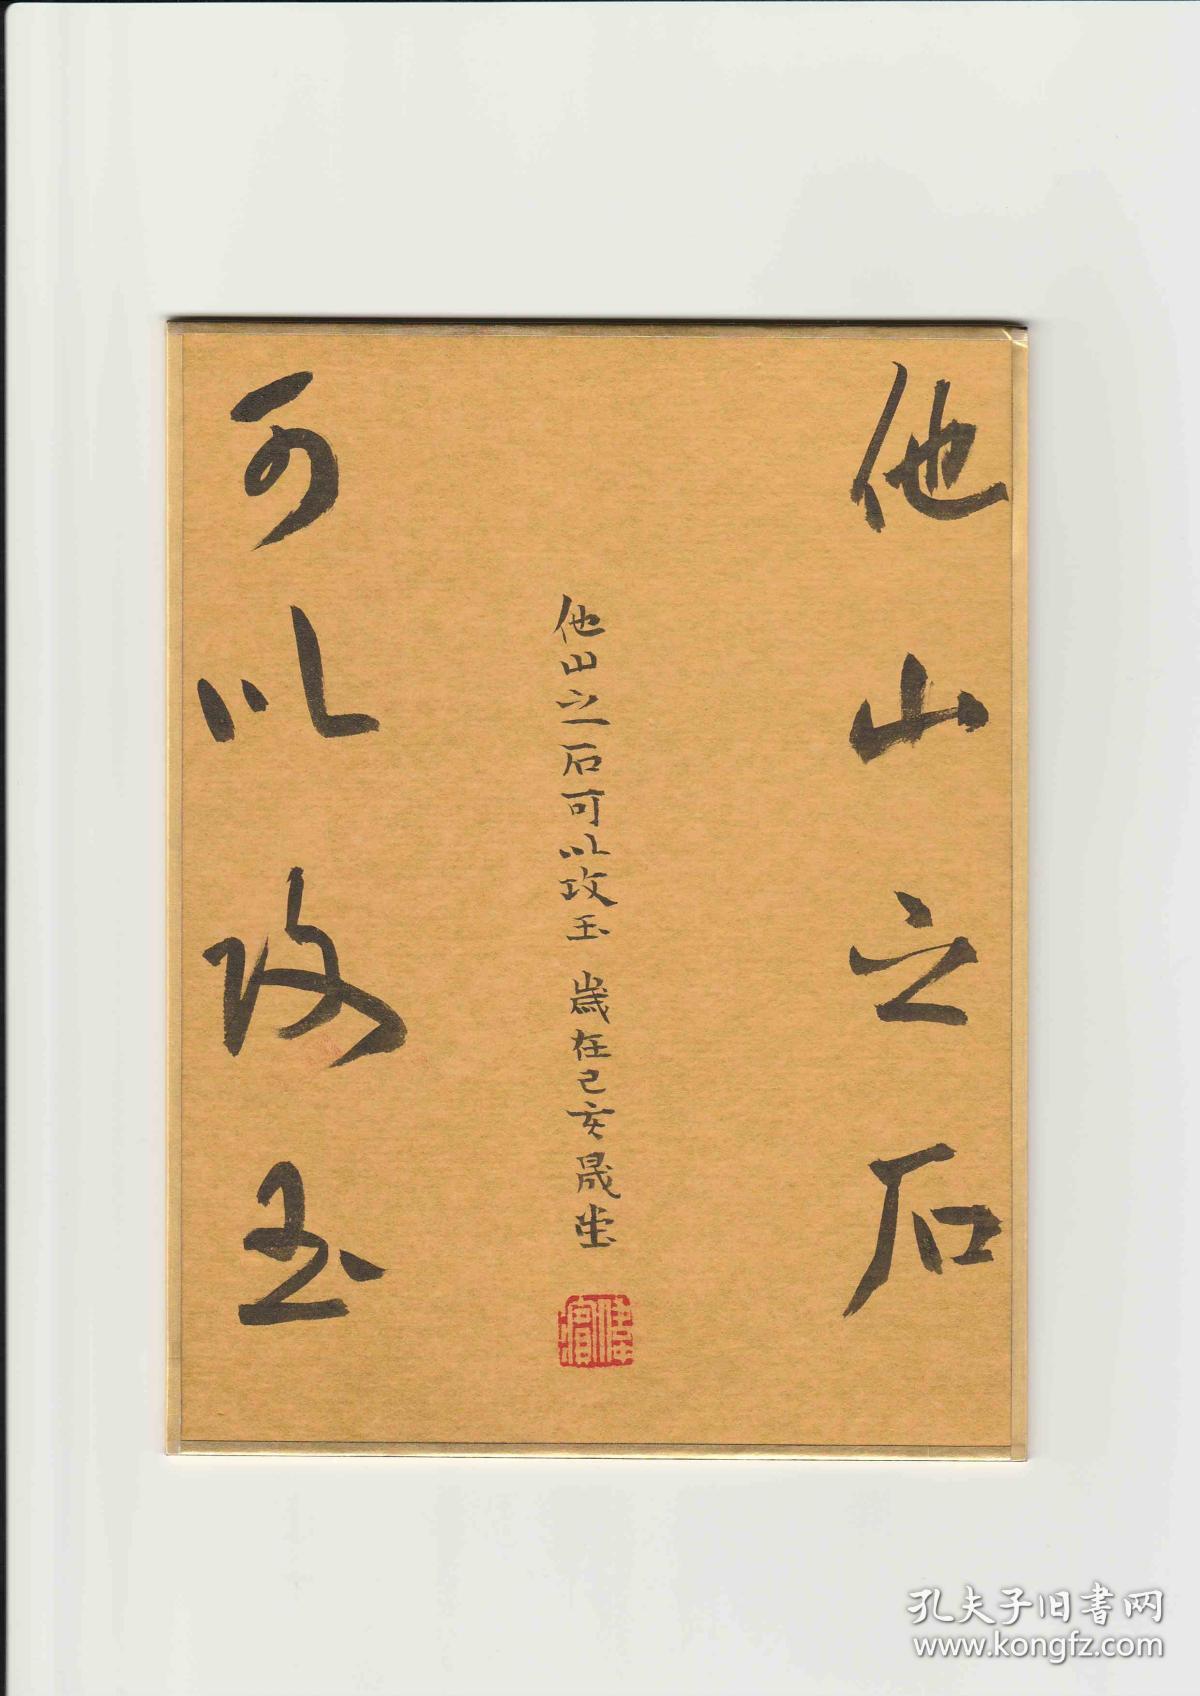 他山之石
他山之石可以攻玉 歲在己亥晟堂
可以攻玉
孔夫子旧書网
www.kongfz.com